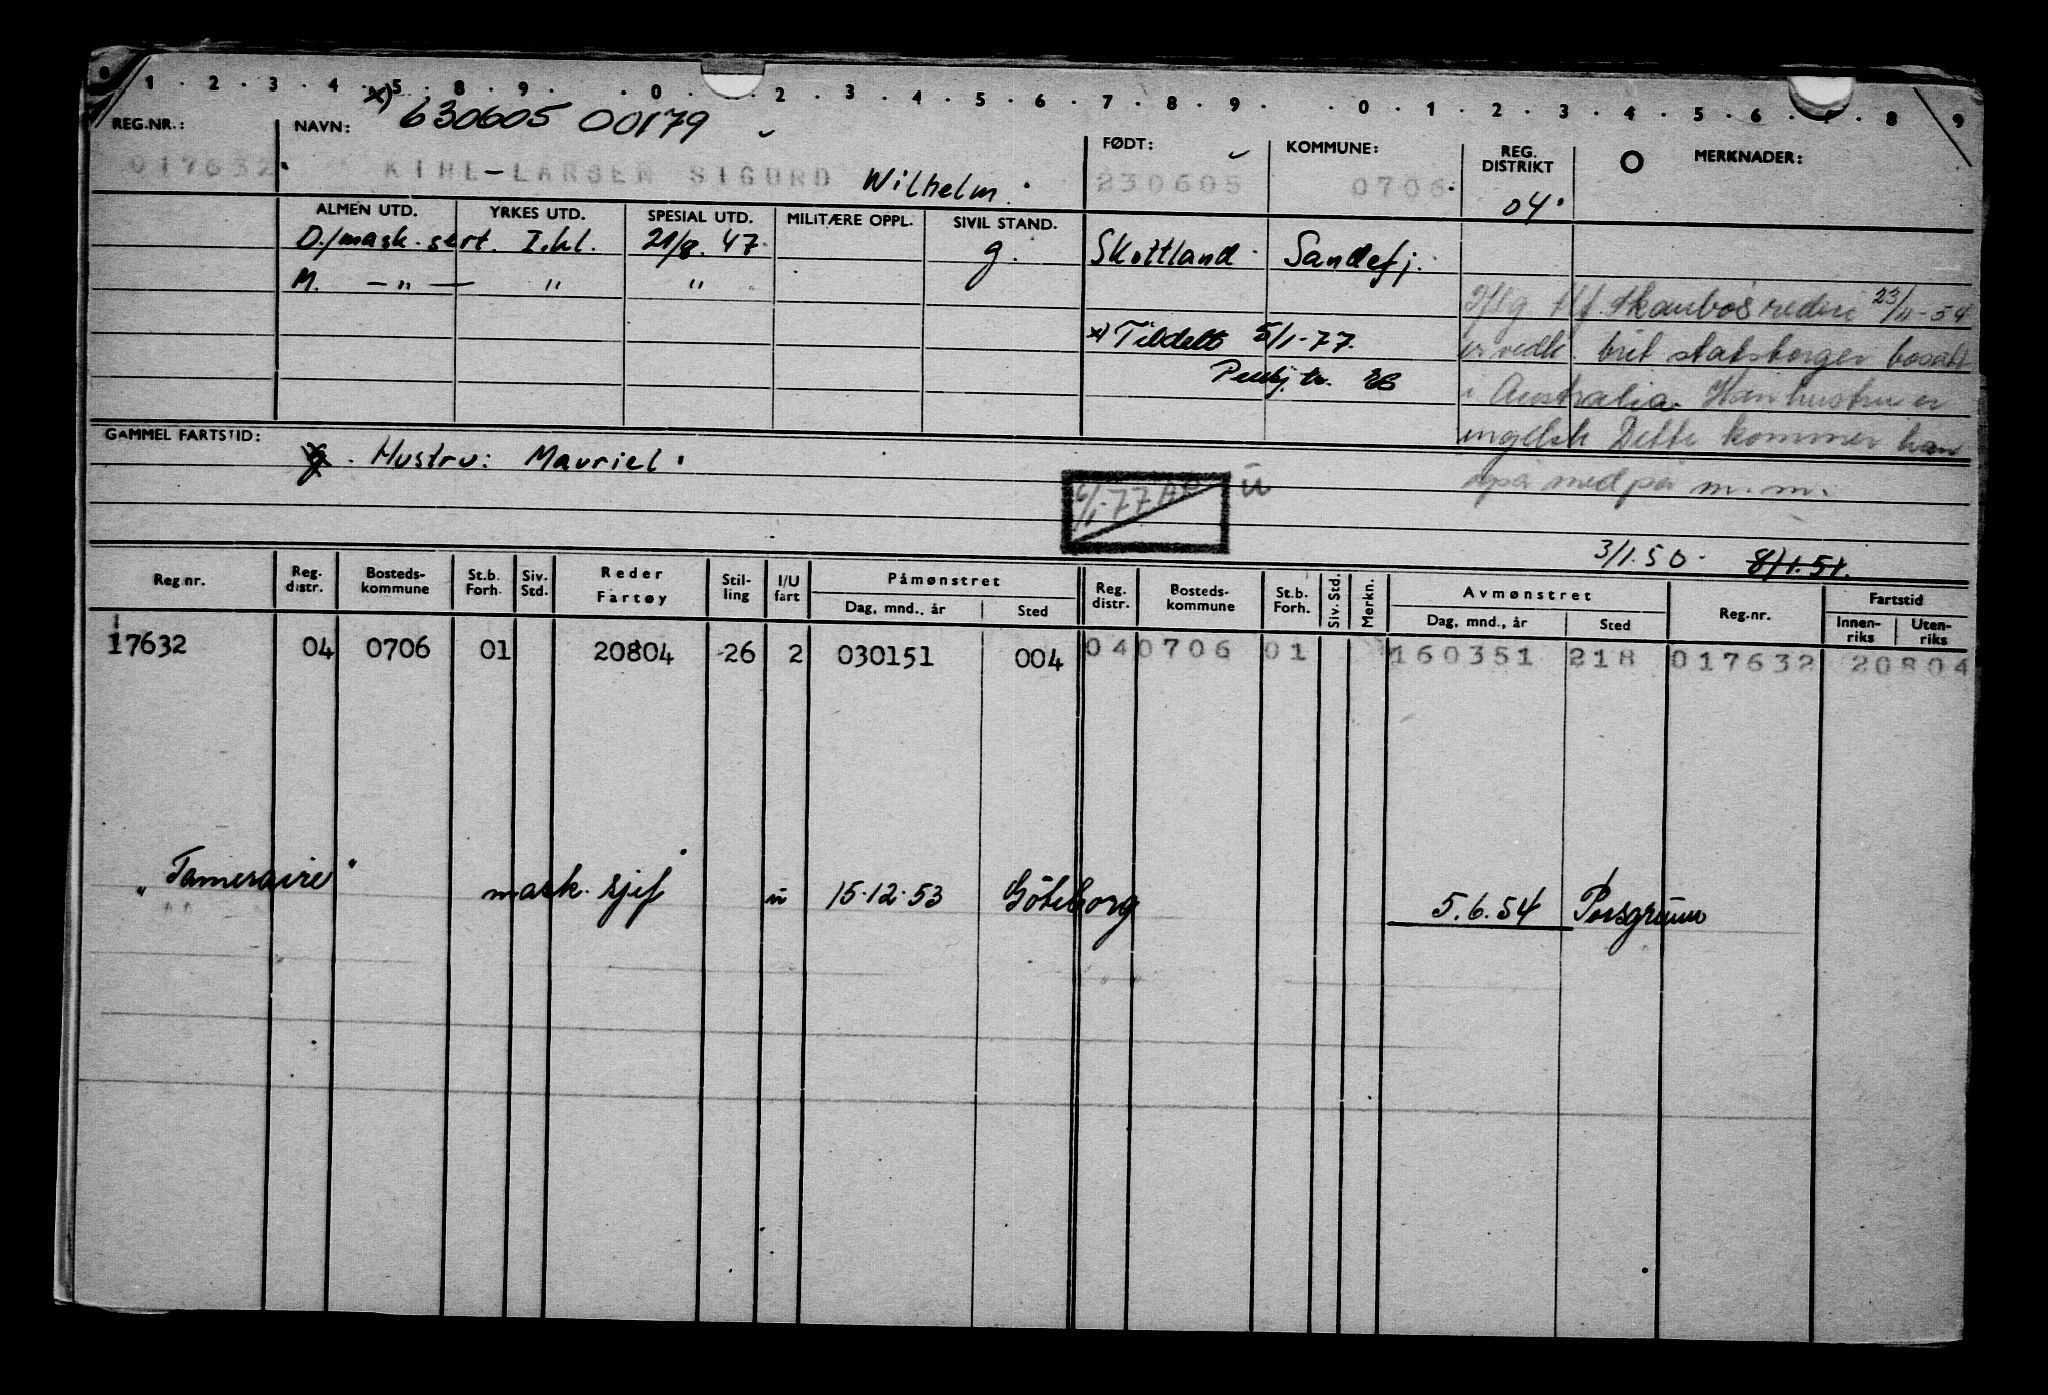 1 . 2 . 3 . 4 . 5 . 8 . 9 . . 0 . . 2 . 3 . 4 . 5 . 6 . 7 . 8 . 9 . . 0 . 1 . 2 . 3 . 4 . 5 . 6 . 7 . 8 . 9
x) 630605 00179
REG.NR.: NAVN: FØDT: KOMMUNE: REG. DISTRIKT O MERKNADER:
017632 KIHL-LARSEN SIGURD Wilhelm. 230605 0706 04
ALMEN UTD. YRKES UTD. SPESIAL UTD. MILITÆRE OPPL. SIVIL STAND.
D./mask. sert. I. kl. 21/8. 47 g. Skottland Sandefj.
M. — " — " "
Iflg tlf. Skaubos rederi 23/11-54
x) Tildelt 5/1-77. er vedk. brit statsborger bosatt
i Australia. Han hustru er
engelsk Dette kommer han
GAMMEL FARTSTID: g. Hustru: Mauriel.
med på m.m.
6/1-77 ü
3/1.50. 8/1.51.
Reg.nr. Reg. distr. Bosteds- kommune St.b. Forh. Siv. Std. Reder Fartøy Stil- ling I/U fart Påmønstret Reg. distr. Bosteds- kommune St.b. Forh. Siv. Std. Merkn. Avmønstret Reg.nr. Fartstid
Dag, mnd., år Sted Dag, mnd., år Sted Innen- riks Uten- riks
17632 04 0706 01 20804 26 2 030151 004 04 0706 01 160351 218 017632 20804
"Tameraire" mask. sjef ü 15.12.53 Göteborg 5.6.54 Porsgrunn